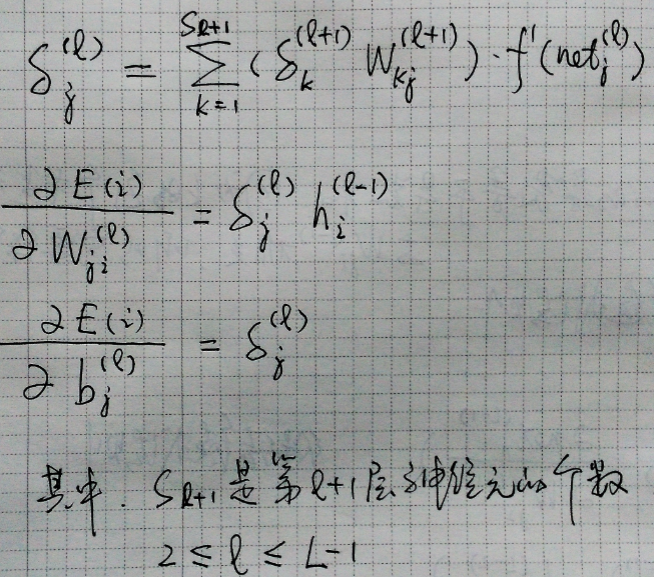 δ_j^(ℓ) = ∑_{k=1}^{S_{ℓ+1}} (δ_k^(ℓ+1) W_{kj}^(ℓ+1)) · f'(net_j^(ℓ))
∂E(i) / ∂W_{ji}^(ℓ) = δ_j^(ℓ) h_i^(ℓ-1)
∂E(i) / ∂b_j^(ℓ) = δ_j^(ℓ)
其中. S_{ℓ+1} 是第 ℓ+1 层神经元的个数
2 ≤ ℓ ≤ L-1